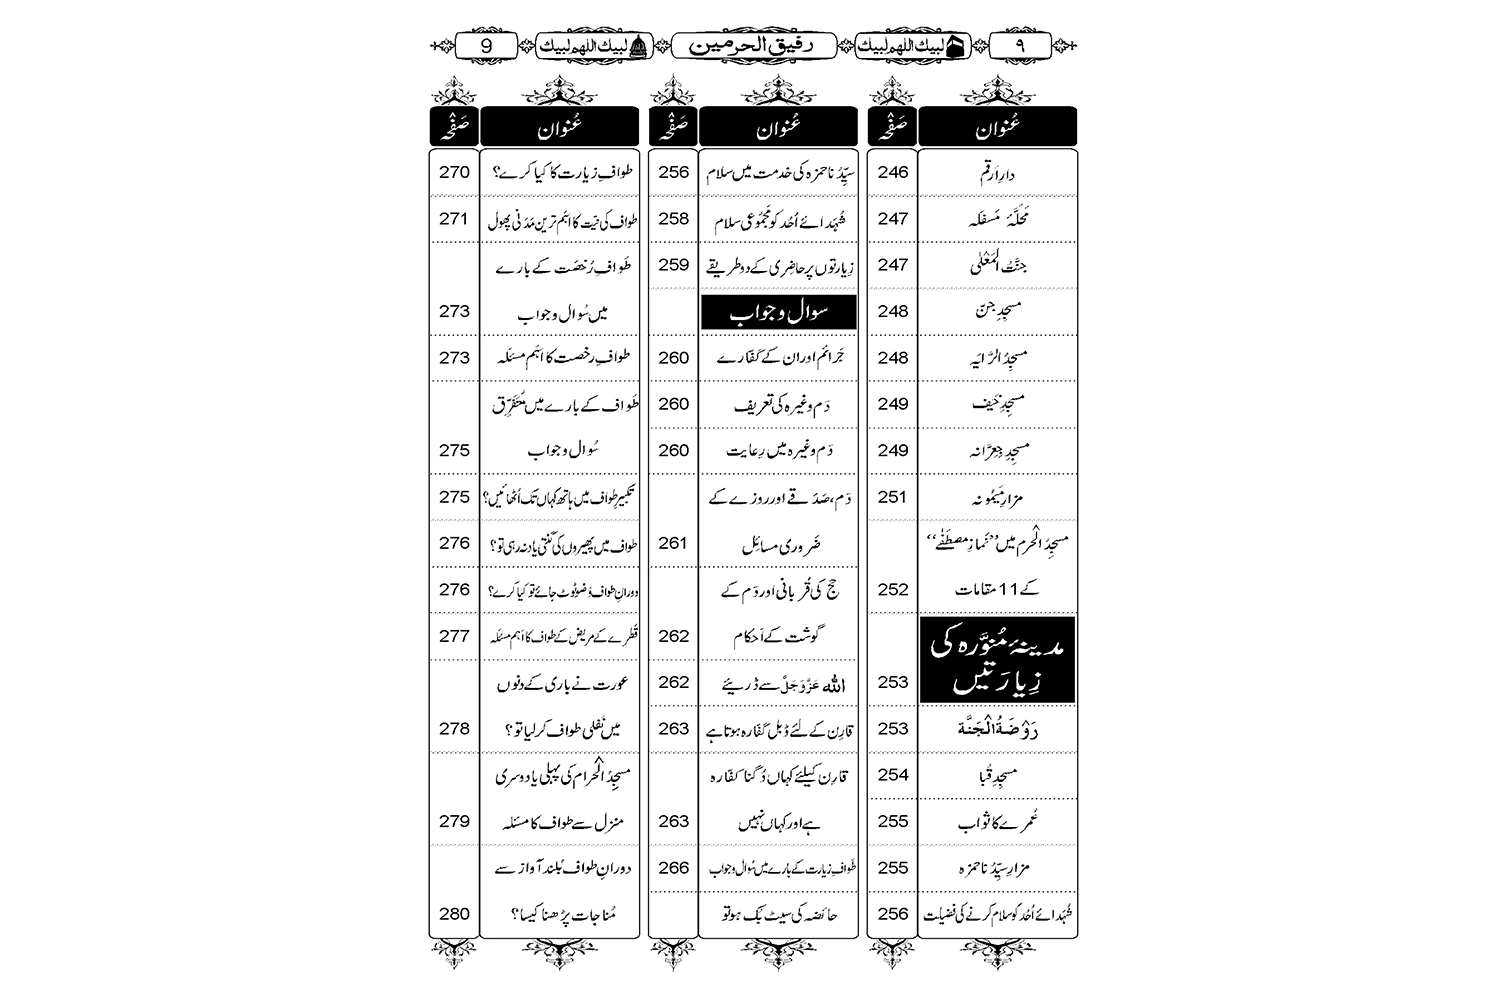 ۹ لبيك اللهم لبيك رفیق الحرمین لبيك اللهم لبيك 9
عُنوان صَفْحہ
دارِ اَرقم 246
مَحَلَّۂ مَسفلہ 247
جنَّتُ الْمَعْلٰی 247
مسجدِ جنّ 248
مسجدُ الرَّایَہ 248
مسجدِ خَیف 249
مسجدِ جِعِرَّانہ 249
مزارِ مَیمُونہ 251
مسجدُ الْحرم میں ’’نَمازِ مصطَفٰے‘‘
کے 11 مقامات 252
مدینۂ مُنوَّرہ کی
زِیارَتیں 253
رَوْضَۃُ الْجَنَّۃ 253
مسجدِ قُبا 254
عُمرے کا ثواب 255
مزارِ سیِّدُنا حمزہ 255
شُہَدائے اُحُد کو سلام کرنے کی فضیلت 256
عُنوان صَفْحہ
سیِّدُنا حمزہ کی خدمت میں سلام 256
شُہَدائے اُحُد کو مَجْمُوعی سلام 258
زِیارتوں پر حاضِری کے دو طریقے 259
سوال و جواب
جَرائم اور ان کے کفّارے 260
دَم وغیرہ کی تعریف 260
دَم وغیرہ میں رِعایت 260
دَم، صَدَقے اور روزے کے
ضَروری مسائِل 261
حج کی قُربانی اور دَم کے
گوشت کے اَحکام 262
اللّٰہ عَزَّوَجَلَّ سے ڈریئے 262
قارِن کے لئے ڈبل کفّارہ ہوتا ہے 263
قارِن کیلئے کہاں دُگنا کفّارہ
ہے اور کہاں نہیں 263
طَوافِ زیارت کے بارے میں سُوال و جواب 266
حائضہ کی سیٹ بُک ہو تو
عُنوان صَفْحہ
طوافِ زیارت کا کیا کرے؟ 270
طواف کی نیّت کا اَہَم ترین مَدَنی پھول 271
طَوافِ رُخصَت کے بارے
میں سُوال و جواب 273
طوافِ رخصت کا اَہَم مسئَلہ 273
طَواف کے بارے میں مُتَفَرِّق
سُوال و جواب 275
تکبیرِ طواف میں ہاتھ کہاں تک اُٹھائیں؟ 275
طواف میں پھیروں کی گنتی یاد نہ رہی تو؟ 276
دورانِ طواف وُضو ٹوٹ جائے تو کیا کرے؟ 276
قَطرے کے مریض کے طواف کا اہم مسئلہ 277
عورت نے باری کے دنوں
میں نَفلی طواف کر لیا تو؟ 278
مسجدُ الْحرام کی پہلی یا دوسری
منزل سے طواف کا مسئلہ 279
دورانِ طواف بُلند آواز سے
مُناجات پڑھنا کیسا؟ 280